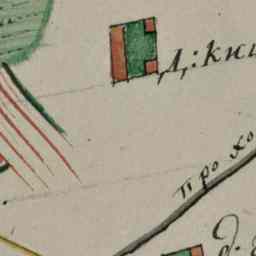 Д: кни
про хо
д.